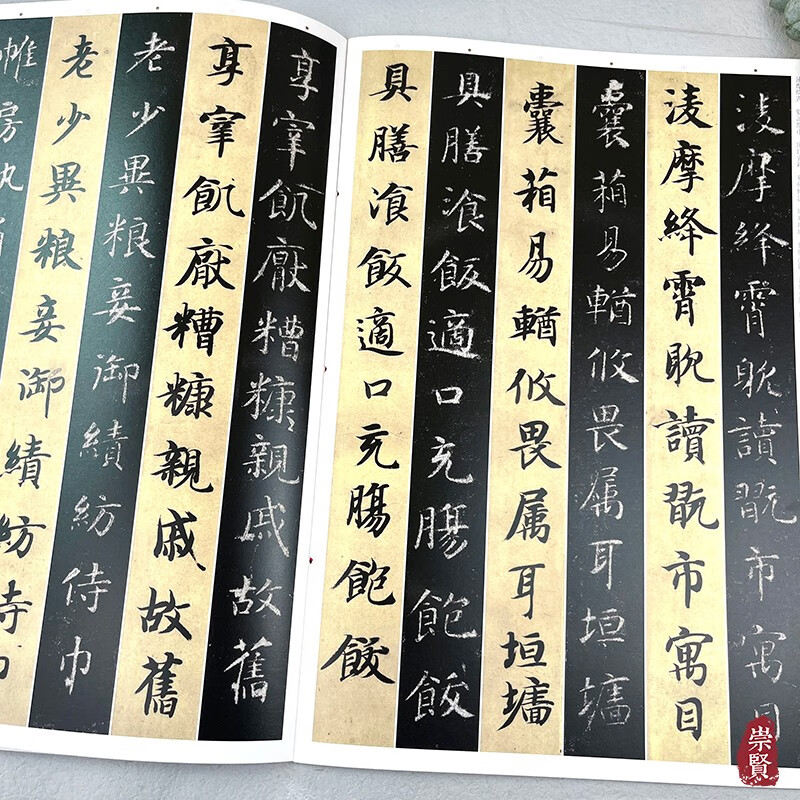 淩摩絳霄耽讀翫市寓目
淩摩絳霄耽讀翫市寓目
囊箱易輶攸畏属耳垣墻
囊箱易輶攸畏属耳垣墻
具膳飡飯適口充腸飽飫
具膳飡飯適口充腸飽飫
享宰飢厭糟糠親戚故舊
享宰飢厭糟糠親戚故舊
老少異粮妾御績紡侍巾
老少異粮妾御績紡侍巾
帷房
崇賢